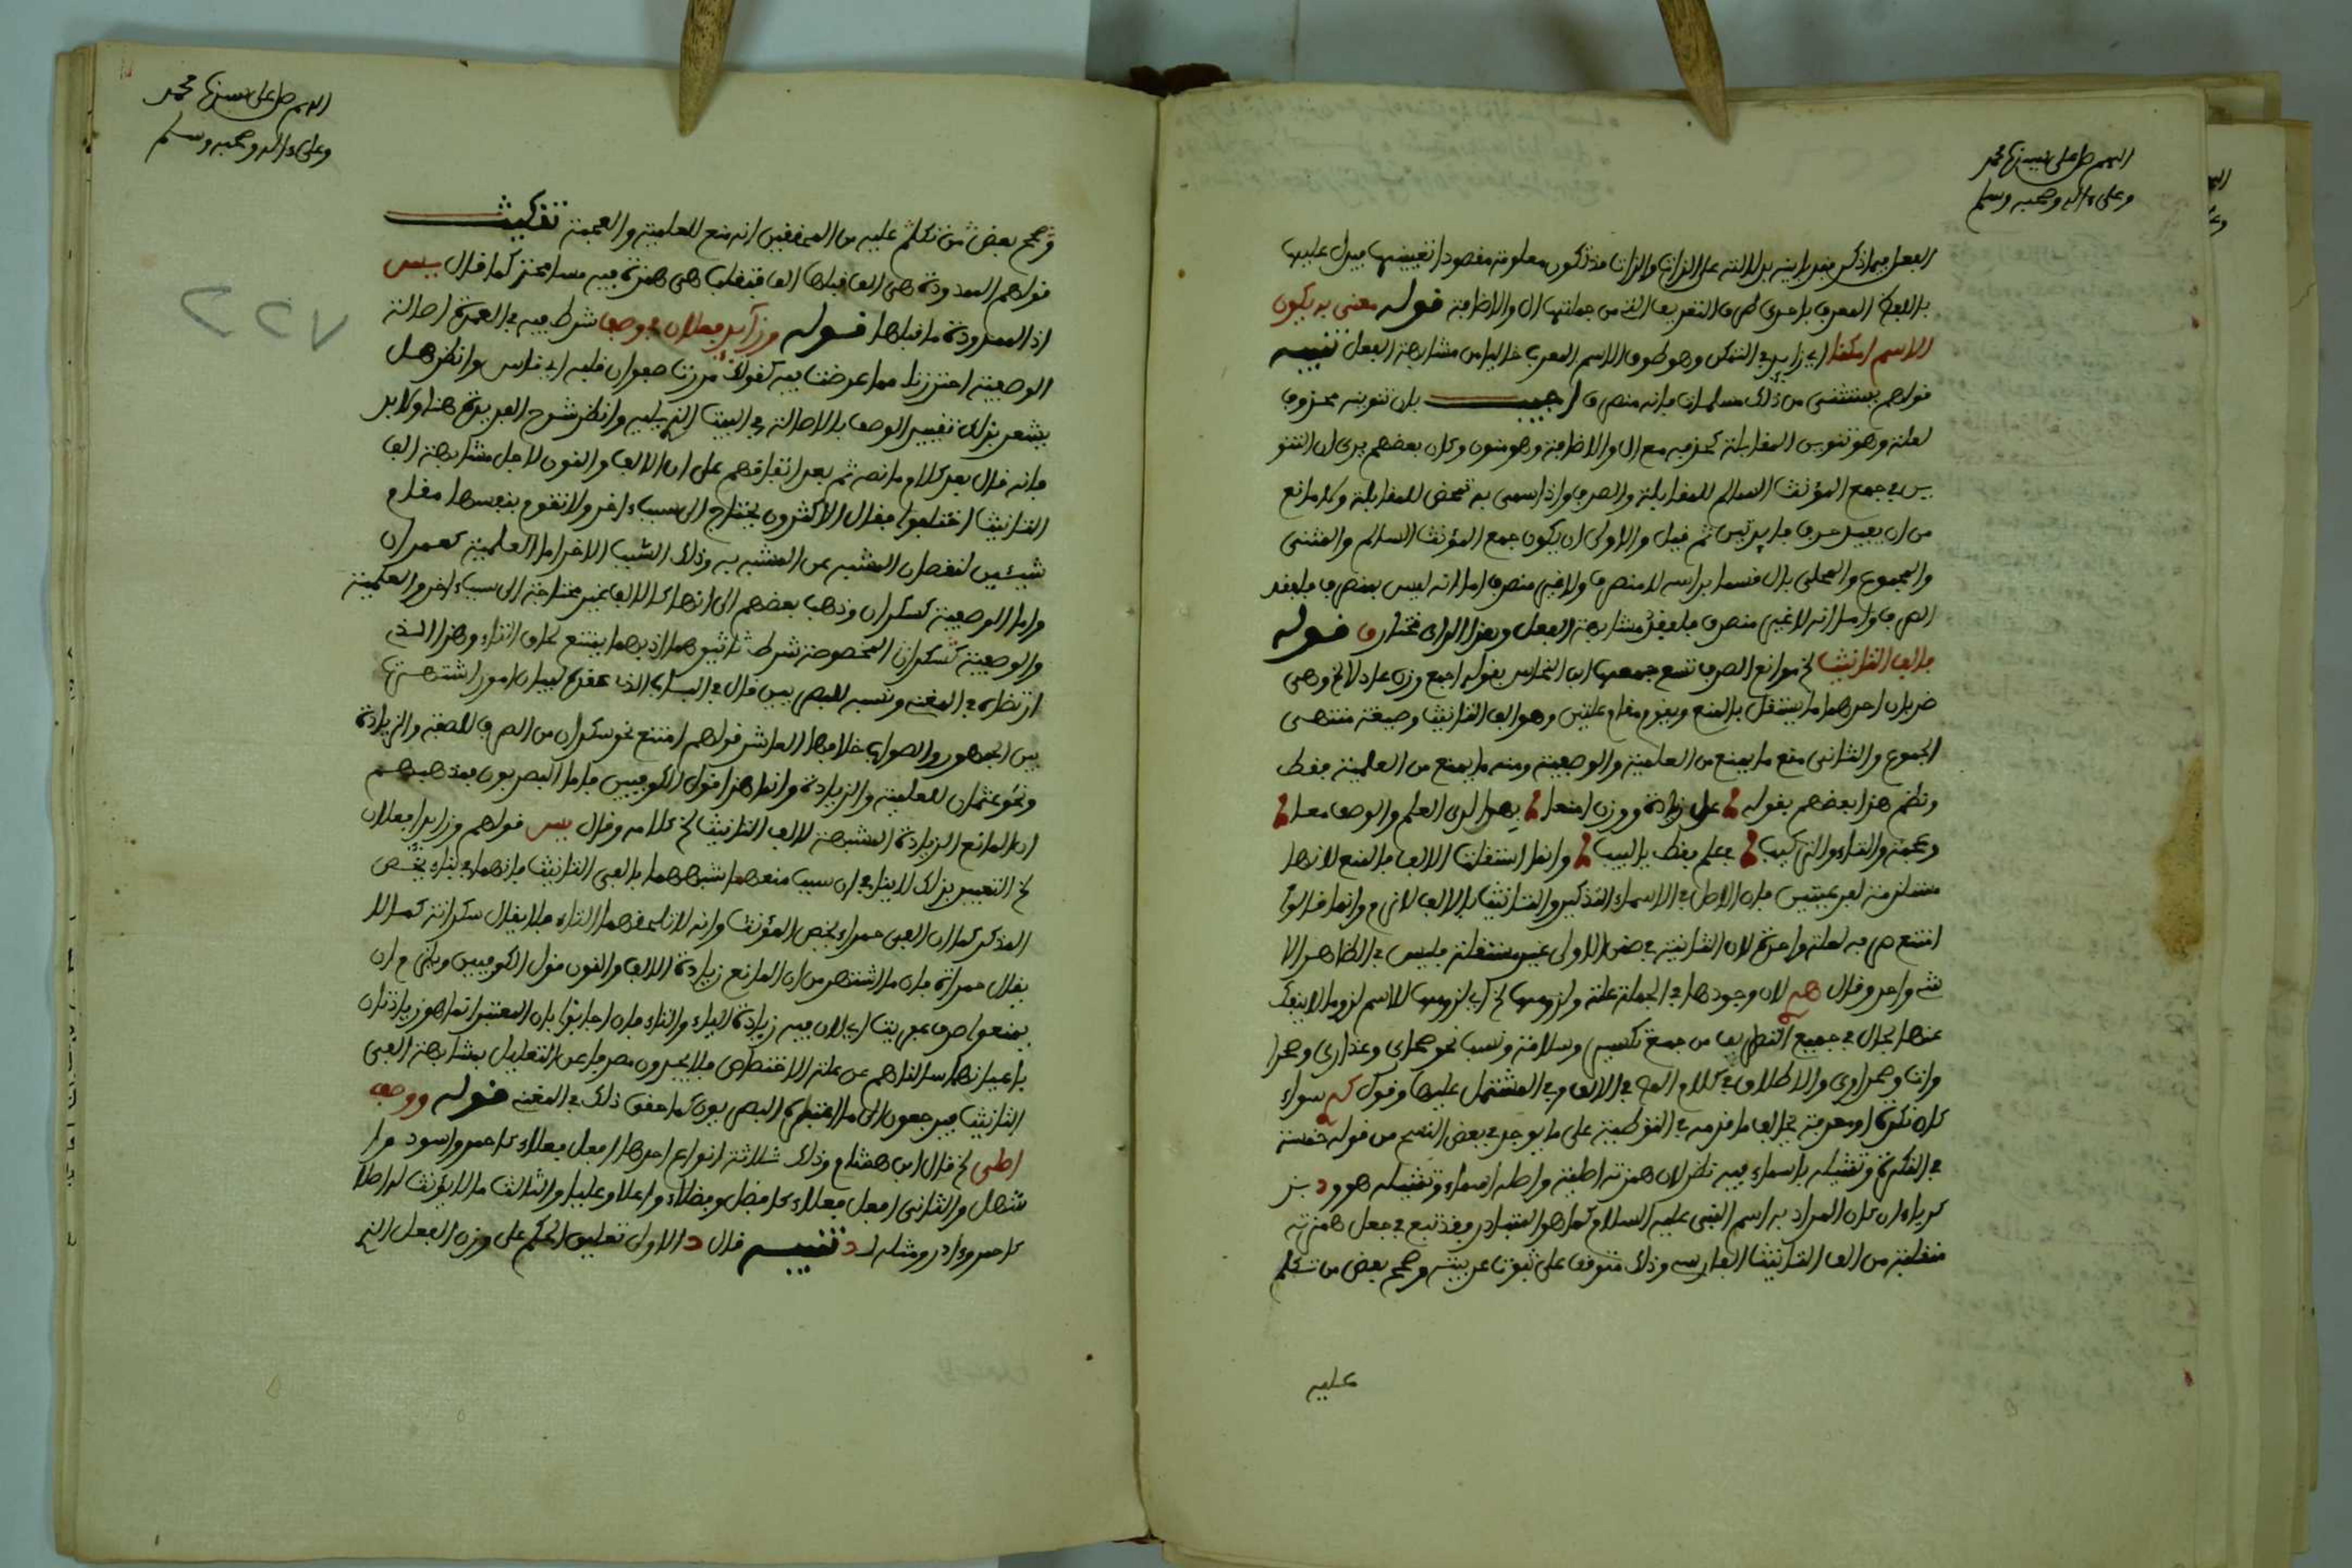 اللهم صل على سيدنا محمد
وعلى ءاله وصحبه وسلم
الفعل فيما ذكر من دلالته على الذات والذات قد تكون معلومة مقصودا تعيينها فيدل عليها
باللفظ المعرف باحدى طرق التعريف التي من جملتها ال والاضافة قوله معنى به يكون
الاسم امكنا اي زايد في التمكن وهو كون الاسم المعرب خاليا من مشابهة الفعل تنبيه
قولهم يستثنى من ذلك مسلمات فانه منصرف اجيب بان تنوينه محذوف
لعلة وهو تنوين المقابلة كحذفه مع ال والاضافة وهو منون وكان بعضهم يرى ان التنو
ين في جمع المؤنث السالم للمقابلة والصرف واذا سمي به تمحض للمقابلة وكلا مانع
من ان يفيد حرف فايدتين ثم قيل والاولى ان يكون جمع المؤنث السالم والمثنى
والمجموع والمحلى بال قسما براسه لا منصرف ولا غير منصرف اما انه ليس بمنصرف فلفقد
الصرف واما انه لا غير منصرف فلفقد مشابهة الفعل وهذا الراي مختار ق قوله
فالف التانيث الخ موانع الصرف تسع جمعها ابن النحاس بقوله اجمع وزن عادلا الخ وهي
ضربان احدهما ما يستقل بالمنع ويقوم مقام علتين وهو الف التانيث وصيغة منتهى
الجموع والثاني منع ما يمنع من العلمية والوصفية ومنه ما يمنع من العلمية فقط
ونظم هذا بعضهم بقوله عدل زيادة ووزن امنعا بهوا لدى العلم والوصف معا
وعجمة والتاء والتركيب في علم فقط بالبيب وانما استقلت الالف بالمنع لانها
مستلزمة لفرعيتين فان الاصل في الاسماء التذكير والتانيث بالالف لازم وانما قالوا
امتنع صرفه لعلة واحدة لان الثانية في ضمن الاولى غير مستقلة فليس في الظاهر الا
شيء واحد وقال لان وجودها في الجملة علة ولزومها الخ اي لزومها للاسم لزوما لا ينفك
عنها بحال في جميع التصاريف من جمع تكسير وسلامة ونسب نحو صحاري وعذارى وصحرا
وات وصحراوى والاطلاق في كلام المص في الالف وفي المشتمل عليها وقول سواء
كان نكرة او معرفة بخلاف ما قدمه في التوطية على ما يوجد في بعض النسخ من قوله خمسة
في النكرة وتمثيله باسماء فيه نظر لان همزته اصلية واصله اسماو وتمثيله هو ود بز
كرياء ان كان المراد به اسم النبي عليه السلام كما هو المتبادر فقد تبع في جعل همزته
منقلبة من الف التانيث الفارسي وذلك متوقف على ثبوت عربيته وصحح بعض من تكلم
عليه
اللهم صل على سيدنا محمد
وعلى ءاله وصحبه وسلم
وصحح بعض من تكلم عليه من المحققين انه منع للعلمية والعجمة تنكيت
قولهم الممدودة هي الف قبلها الف فتقلب هي همزة فيه مسامحة كما قال يس
اذ الممدودة ما قبلها قوله وزايد فعلان في وصف شرط فيه في العمدة اصالة
الوصفية احترزنا مما عرضت فيه كقولك مررت صفوان قلبه اي قاس وانظر هل
يشعر بذلك تفسير الوصف بالاصالة في البيت الذي يليه وانظر شرح الفريدة هنا ولا بد
فانه قال بعد كلام ما نصه ثم بعد اتفاقهم على ان الالف والنون لاجل مشابهة الف
التانيث اختلفوا فقال الاكثرون يحتاج الى سبب ءاخر ولا تقوم بنفسها مقام
شيئين لنقصان المشبه عن المشبه به وذلك السبب الاخر اما العلمية كعمران
واما الوصفية كسكران وذهب بعضهم الى انها كالالف غير محتاجة الى سبب ءاخر والعلمية
والوصفية كسكران المخصوصة شرط تاثيرهما اذ بهما يمتنع لحاق التاء وهذا الذي
ارتضاه في المغني ونسبه للبصريين قال في الباب الذي عقده لبيان امور اشتهرت
بين الجمهور والصواب خلافها العاشر قولهم امتنع نحو سكران من الصرف للصفة والزيادة
ونحو عثمان للعلمية والزيادة وانما هذا قول الكوفيين فاما البصريون فمذهبهم
ان المانع الزيادة المشبهة لالف التانيث الخ كلامه وقال يس قولهم وزايدا فعلان
الخ التعبير بذلك لا ينافي ان سبب منعهما شبههما بالفي التانيث فانهما في بناء يخص
المذكر كما ان الفي حمراء يخص المؤنث وانه لا تلحقهما التاء فلا يقال سكرانة كما لا
يقال حمراءة فان ما اشتهر من ان المانع زيادة الالف والنون قول الكوفيين ويلزم ان
يمنعوا صرف عفريت اي لان فيه زيادة الياء والتاء فان اجابوا بان المعتبر انما هو زيادتان
باعيانهما سالناهم عن علة الاختصاص فلا يجدون مصرفا عن التعليل بمشابهة الفي
التانيث فيرجعون الى ما اعتبره البصريون كما حقق ذلك في المغني قوله ووصف
اصلي الخ قال ابن هشام وذلك ثلاثة انواع احدها افعل فعلاء كاحمر واسود وا
شهل والثاني افعل فعلى كافضل وفضلى واعلا وعليا والثالث ما لا يؤنث له اصلا
كاحمر وءادر ومثله لد تنبيه قال د الاولى تعليق الحكم على وزن الفعل الذي